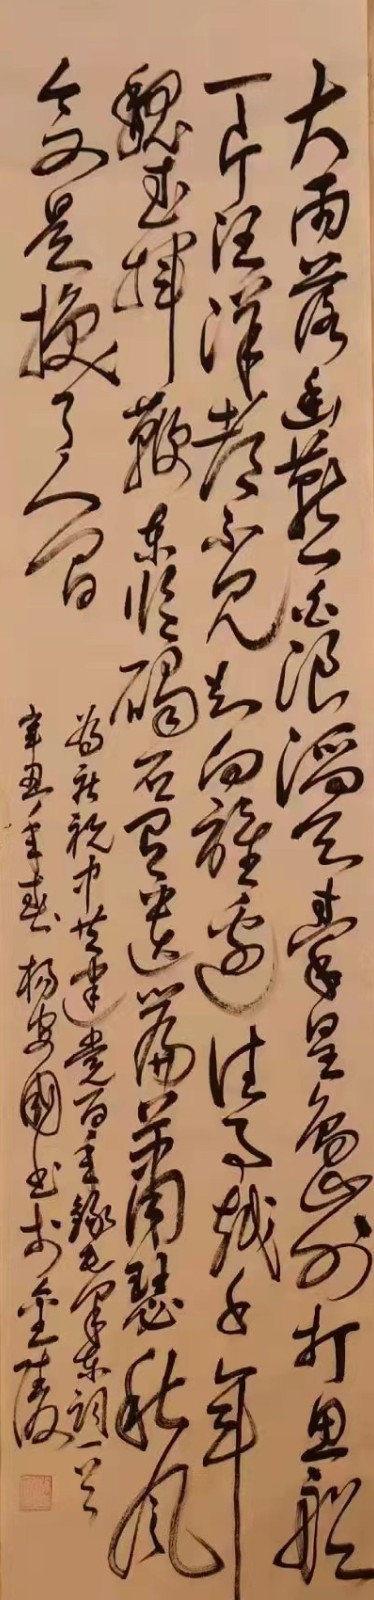 大雨落幽燕白浪滔天秦皇岛外打鱼船
一片汪洋都不见知向谁边往事越千年
魏武挥鞭东临碣石有遗篇萧瑟秋风
今又是换了人间
为庆祝中共建党百年录毛泽东词一首
辛丑年春杨安国书于金陵